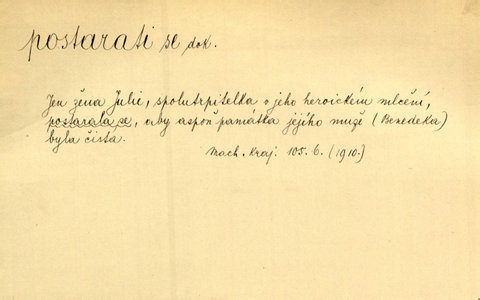 postarati se dok.
Jen žena Julie, spolutrpitelka v jeho heroickém mlčení,
postarala se, aby aspoň památka jejího muže (Benedeka)
byla čista.
Mach. Kraj. 105.6. (1910.)